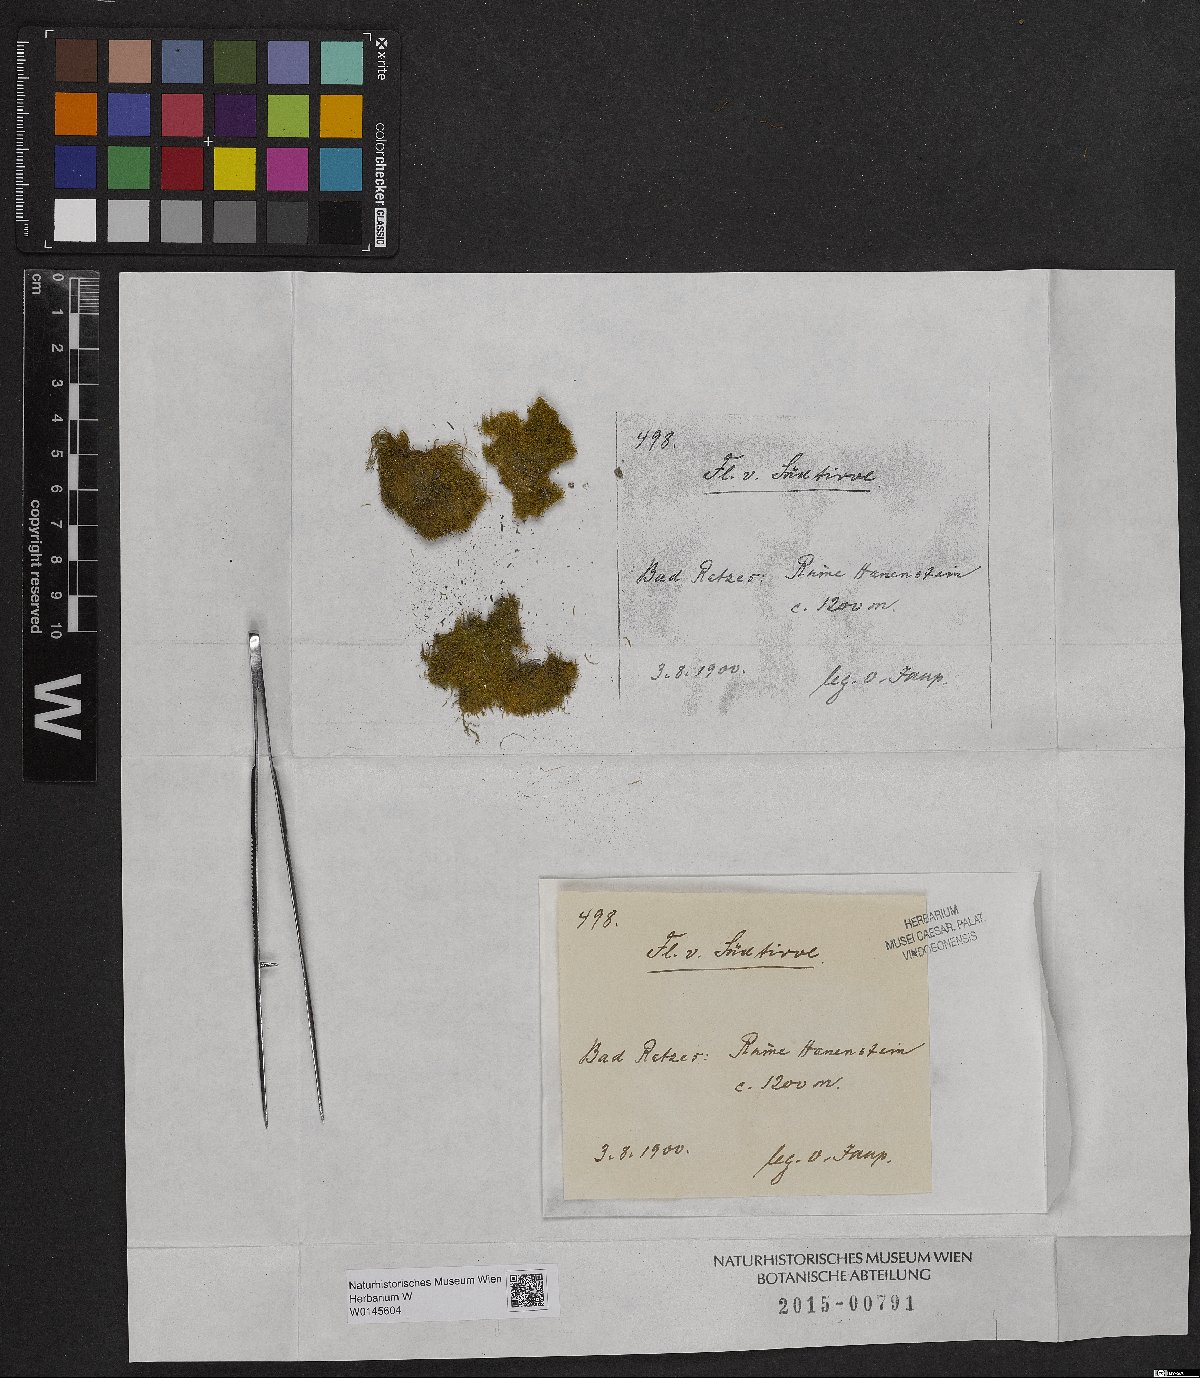 xrite
colorchecker CLASSIC
cm
0 1 2 3 4 5 6 7 8 9 10
copyright reserved
W
498.
Fl. v. Südtirol
Bad Ratzes: Ruine Hauenstein
c. 1200 m.
3. 8. 1900. leg. O. Jaap.
498.
Fl. v. Südtirol
Bad Ratzes: Ruine Hauenstein
c. 1200 m.
3. 8. 1900. leg. O. Jaap.
HERBARIUM
MUSEI CAESAR. PALAT.
VINDOBONENSIS
NATURHISTORISCHES MUSEUM WIEN
BOTANISCHE ABTEILUNG
2015-00791
Naturhistorisches Museum Wien
Herbarium W
W0145604